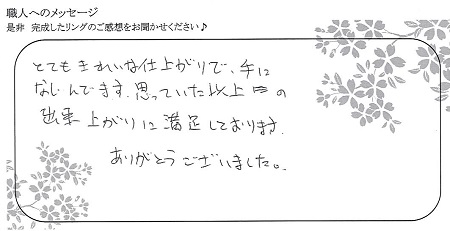 職人へのメッセージ
是非 完成したリングのご感想をお聞かせください♪
とてもきれいな仕上がりで、手に
なじんでます。思っていた以上の
出来上がりに満足しております。
ありがとうございました。